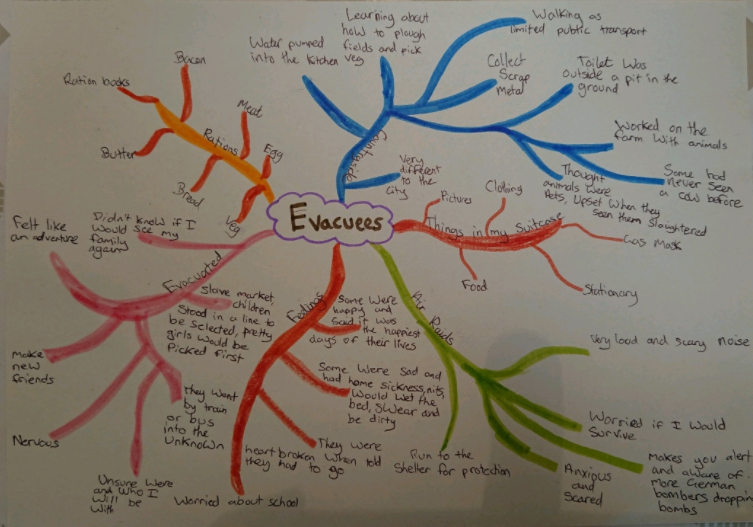 Evacuees
Rations
Ration books
Bacon
Meat
Egg
Butter
Bread
Veg
Countryside
Water pumped
into the kitchen
Learning about
how to plough
fields and pick
veg
Walking as
limited public transport
Collect
Scrap
metal
Toilet was
outside a pit in the
ground
Worked on the
farm with animals
Some had
never seen
a cow before
Thought
animals were
Pets, Upset when they
seen them slaughtered
Very
different
to the
city
Things in my suitcase
Pictures
Clothing
Gas Mask
Food
Stationary
Air Raids
Very loud and scary noise
Worried if I would
Survive
Makes you alert
and aware of
more German
bombers dropping
bombs
Anxious
and
Scared
Run to the
Shelter for protection
Feelings
Some were
happy and
Said it was
the happiest
days of their lives
Some were sad and
had home sickness, nits,
Would wet the
bed, swear and
be dirty
They were
heart broken when told
they had to go
Worried about school
Evacuated
Didn't know if I
Would see my
family
again
Felt like
an adventure
Slave market,
children
Stood in a line to
be selected, pretty
girls would be
Picked first
They went
by train
or bus
into the
Unknown
Unsure were
and who I
will be
with
Nervous
Make
new
friends